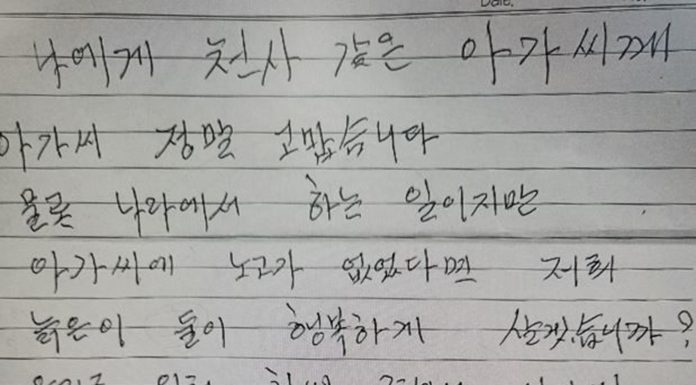 나에게 천사 같은 아가씨께
아가씨 정말 고맙습니다
물론 나라에서 하는 일이지만
아가씨에 노고가 없었다면 저희
늙은이 둘이 행복하게 살겠습니까?